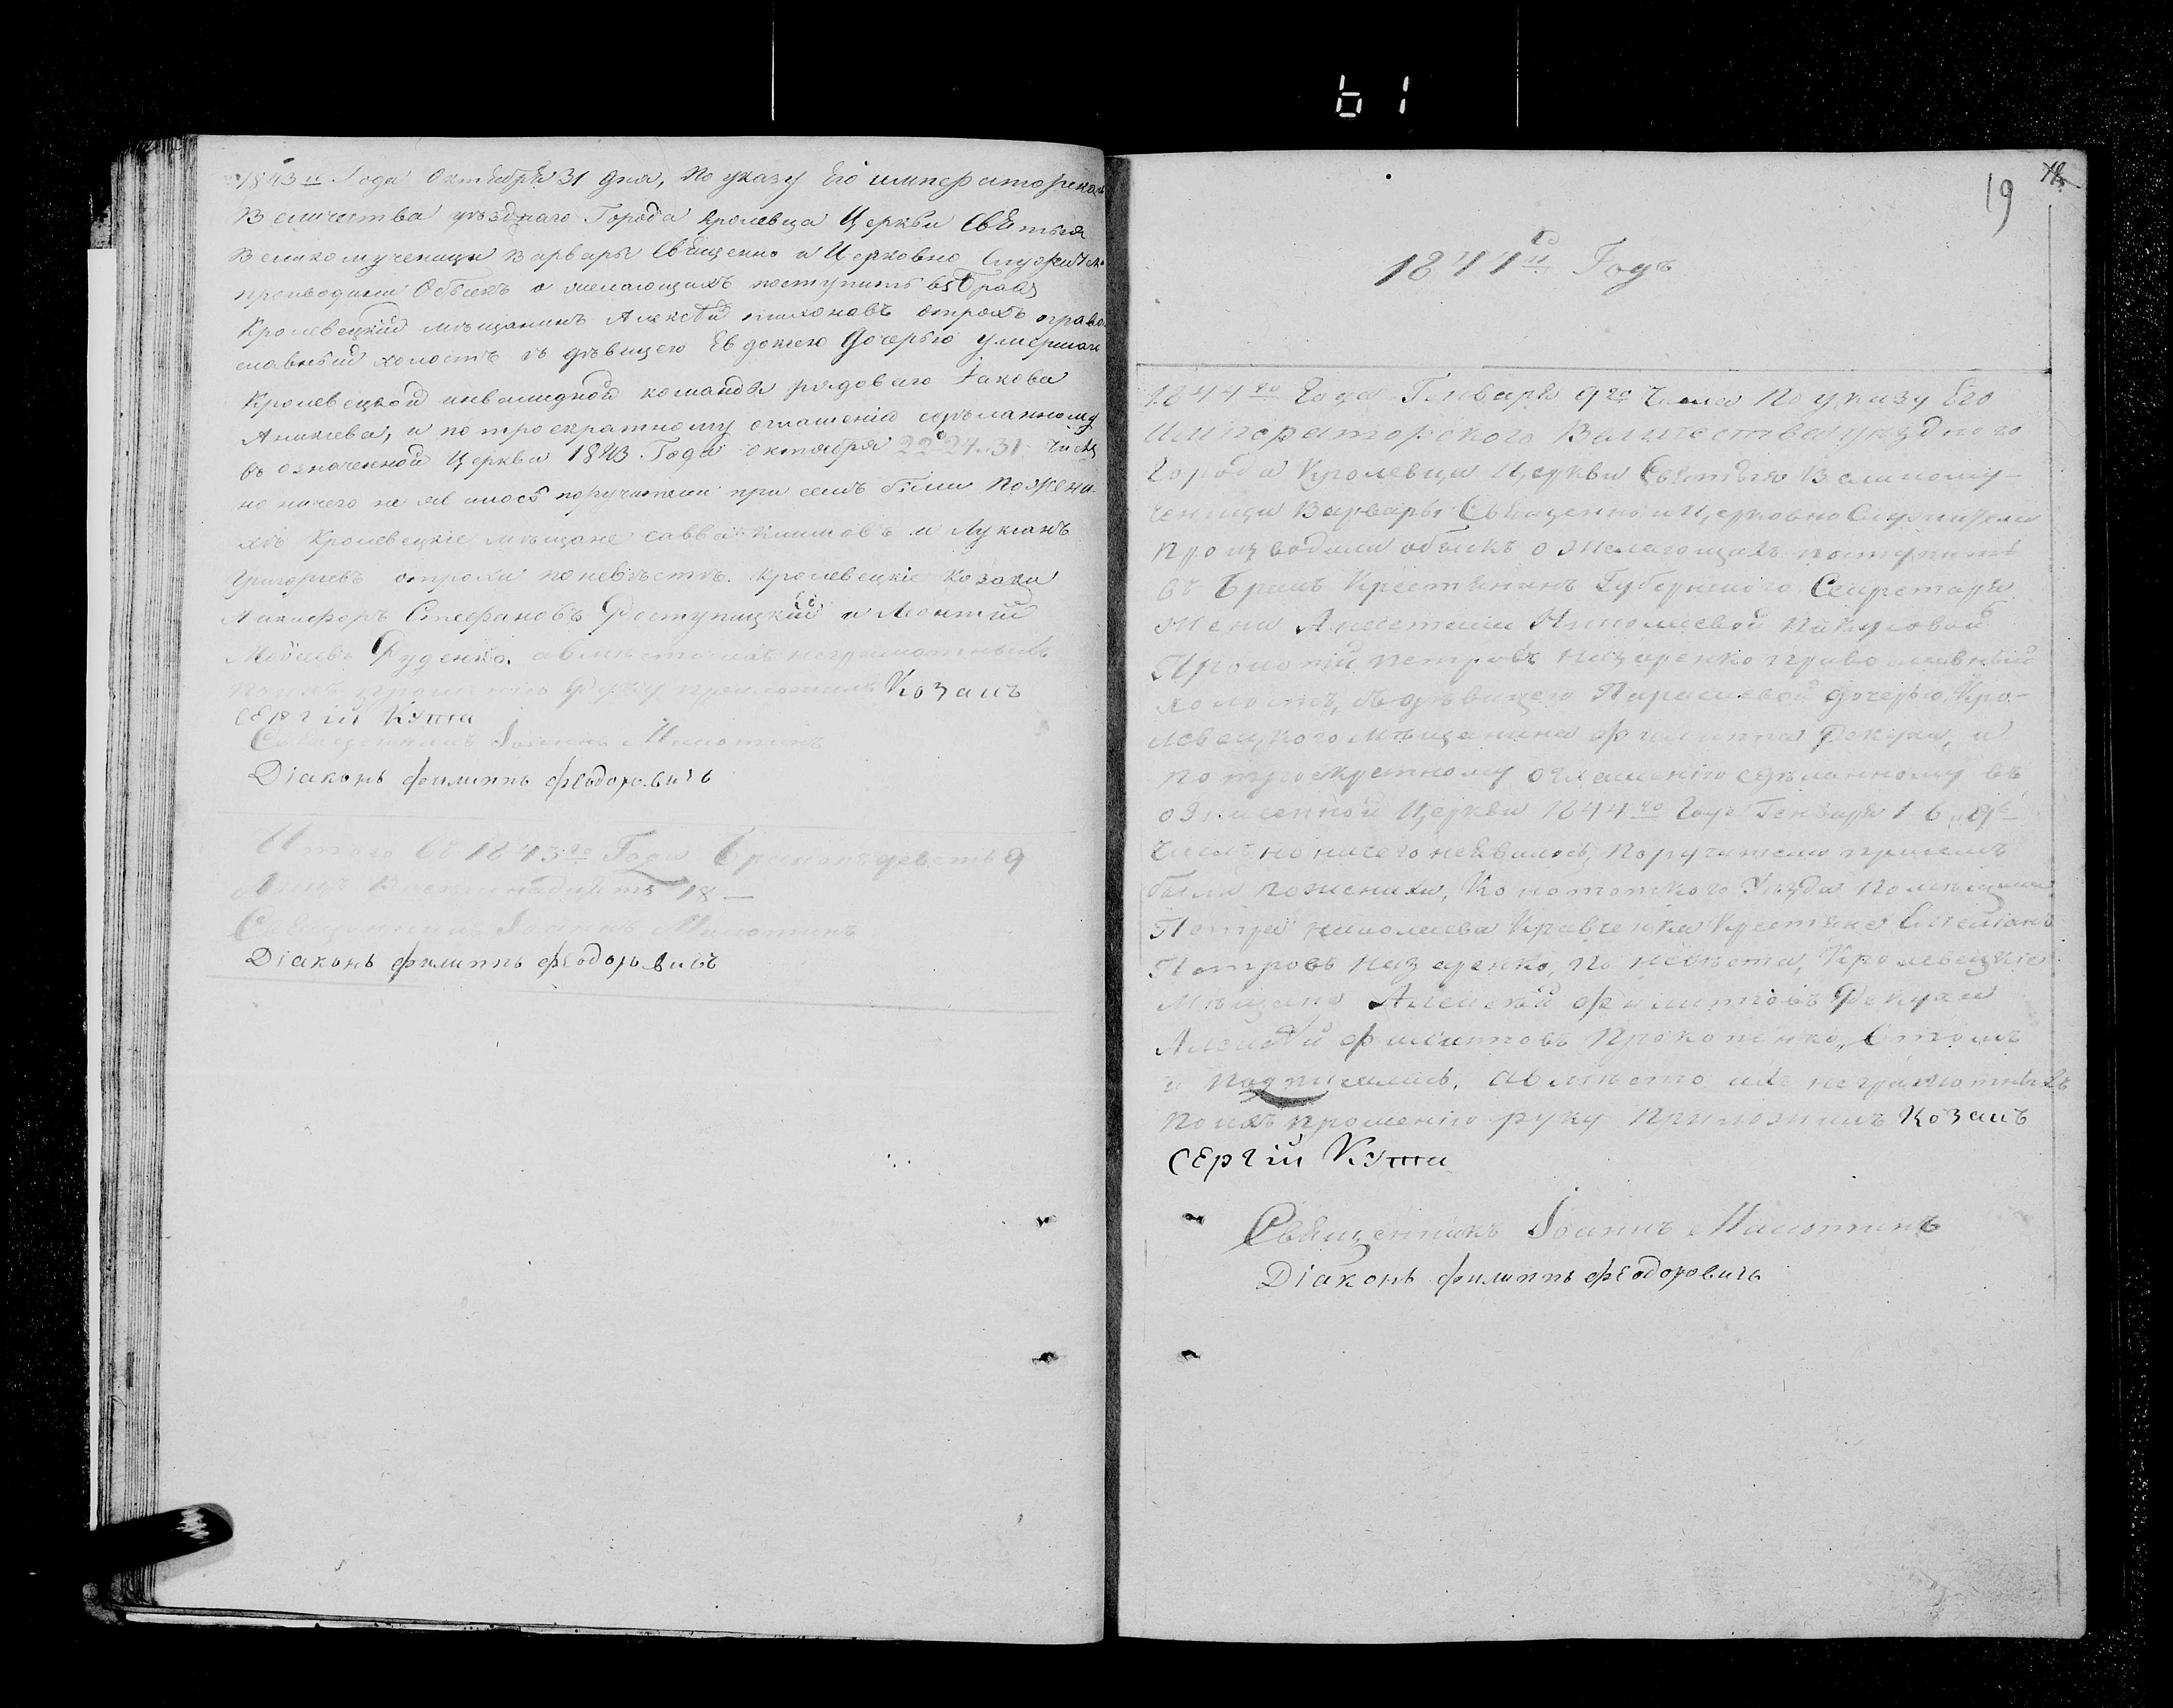 61
1843го Года Октября 31 дня, по указу Его императорскаго
Величества уѣзднаго Города Кролевца Церкви Святыя
Великомученицы Варвары Священно и Церковно Служители
производили Обыскъ о желающихъ поступить въ бракъ
Кролевецкій мѣщанинъ Алексѣй отрокъ право
славный холостъ съ дѣвицею Евдокіею дочерью умершаго
Кролевецкой инвалидной команды рядоваго Іакова
Аникіева, и по троекратному оглашенію сдѣланному
въ означенной Церкви 1843 Года октября 22 24 и 31 числъ
но ничего не явилось поручители при семъ были по жени-
хѣ Кролевецкіе мѣщане Савва Климовъ и Лукіанъ
Григорьевъ по невѣстѣ. Кролевецкіе Козаки
Никифоръ Стефановъ и Леонтій
Руденко. авмѣсто ихъ неграмотныхъ
по ихъ прошенію руку приложилъ Козакъ
Сергій Кушн
Священникъ Іоаннъ Милютинъ
Діаконъ Филиппъ Феодоровичъ
Итого въ 1843го Года браковъ девять 9
Лицъ Восемнадцять 18 —
Священникъ Іоаннъ Милютинъ
Діаконъ Филиппъ Феодоровичъ
19
1844й Годъ
1844го Года Генваря 9го Числа По указу Его
Императорскаго Величества уѣзднаго
города Кролевца Церкви Святыя Великому-
ченицы Варвары Священно и Церковно Служители
производили обыскъ о желающихъ поступить
въ бракъ Крестьянинъ Губернскаго Секретаря
жены Анастасіи Николаевой
Прокопій Петровъ Назаренко православный
холостъ, съ дѣвицею Парасковіей дочерью Кро-
левецкого мѣщанина Филиппа и
по троекратному оглашенію сдѣланному въ
означенной Церкви 1844го года Генваря 1 6 и 9го
числъ но ничего неявилось, поручители присемъ
были по женихѣ, Конотопского Уѣзда помѣщика
Петра Николаева Кравченка Крестьяне Стефанъ
Петровъ Назаренко, по невѣстѣ, Кролевецкіе
мѣщане Алексѣй Филипповъ
Алексѣй Филипповъ Прокопенко, въ томъ
и подписались, авмѣсто ихъ неграмотныхъ
по ихъ прошенію руку приложилъ Козакъ
Сергій Кушн
Священникъ Іоаннъ Милютинъ
Діаконъ Филиппъ Феодоровичъ